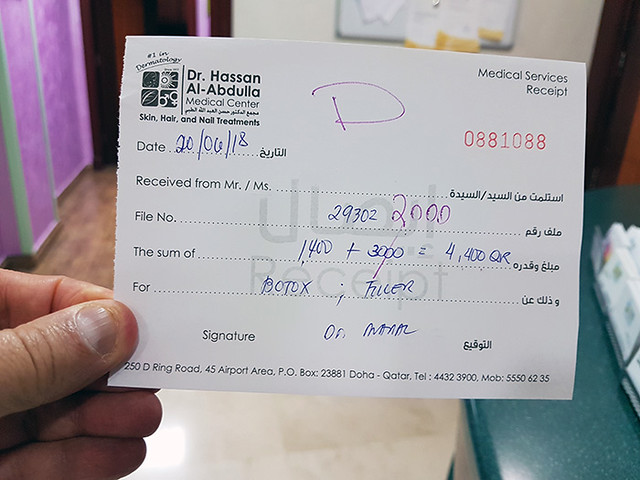 #1 in Dermatology
Dr. Hassan
Al-Abdulla
Medical Center
مجمع الدكتور حسن العبد الله الطبي
Skin, Hair, and Nail Treatments
Medical Services
Receipt
D
0881088
Date 20/06/18 التاريخ
Received from Mr. / Ms. استلمت من السيد/السيدة
إيصال
Receipt
File No. 29302 ملف رقم
2000
The sum of 1,400 + 3000 = 4,400 QR مبلغ وقدره
For BOTOX ; FILLER و ذلك عن
Signature Dr. التوقيع
250 D Ring Road, 45 Airport Area, P.O. Box: 23881 Doha - Qatar, Tel : 4432 3900, Mob: 5550 62 35